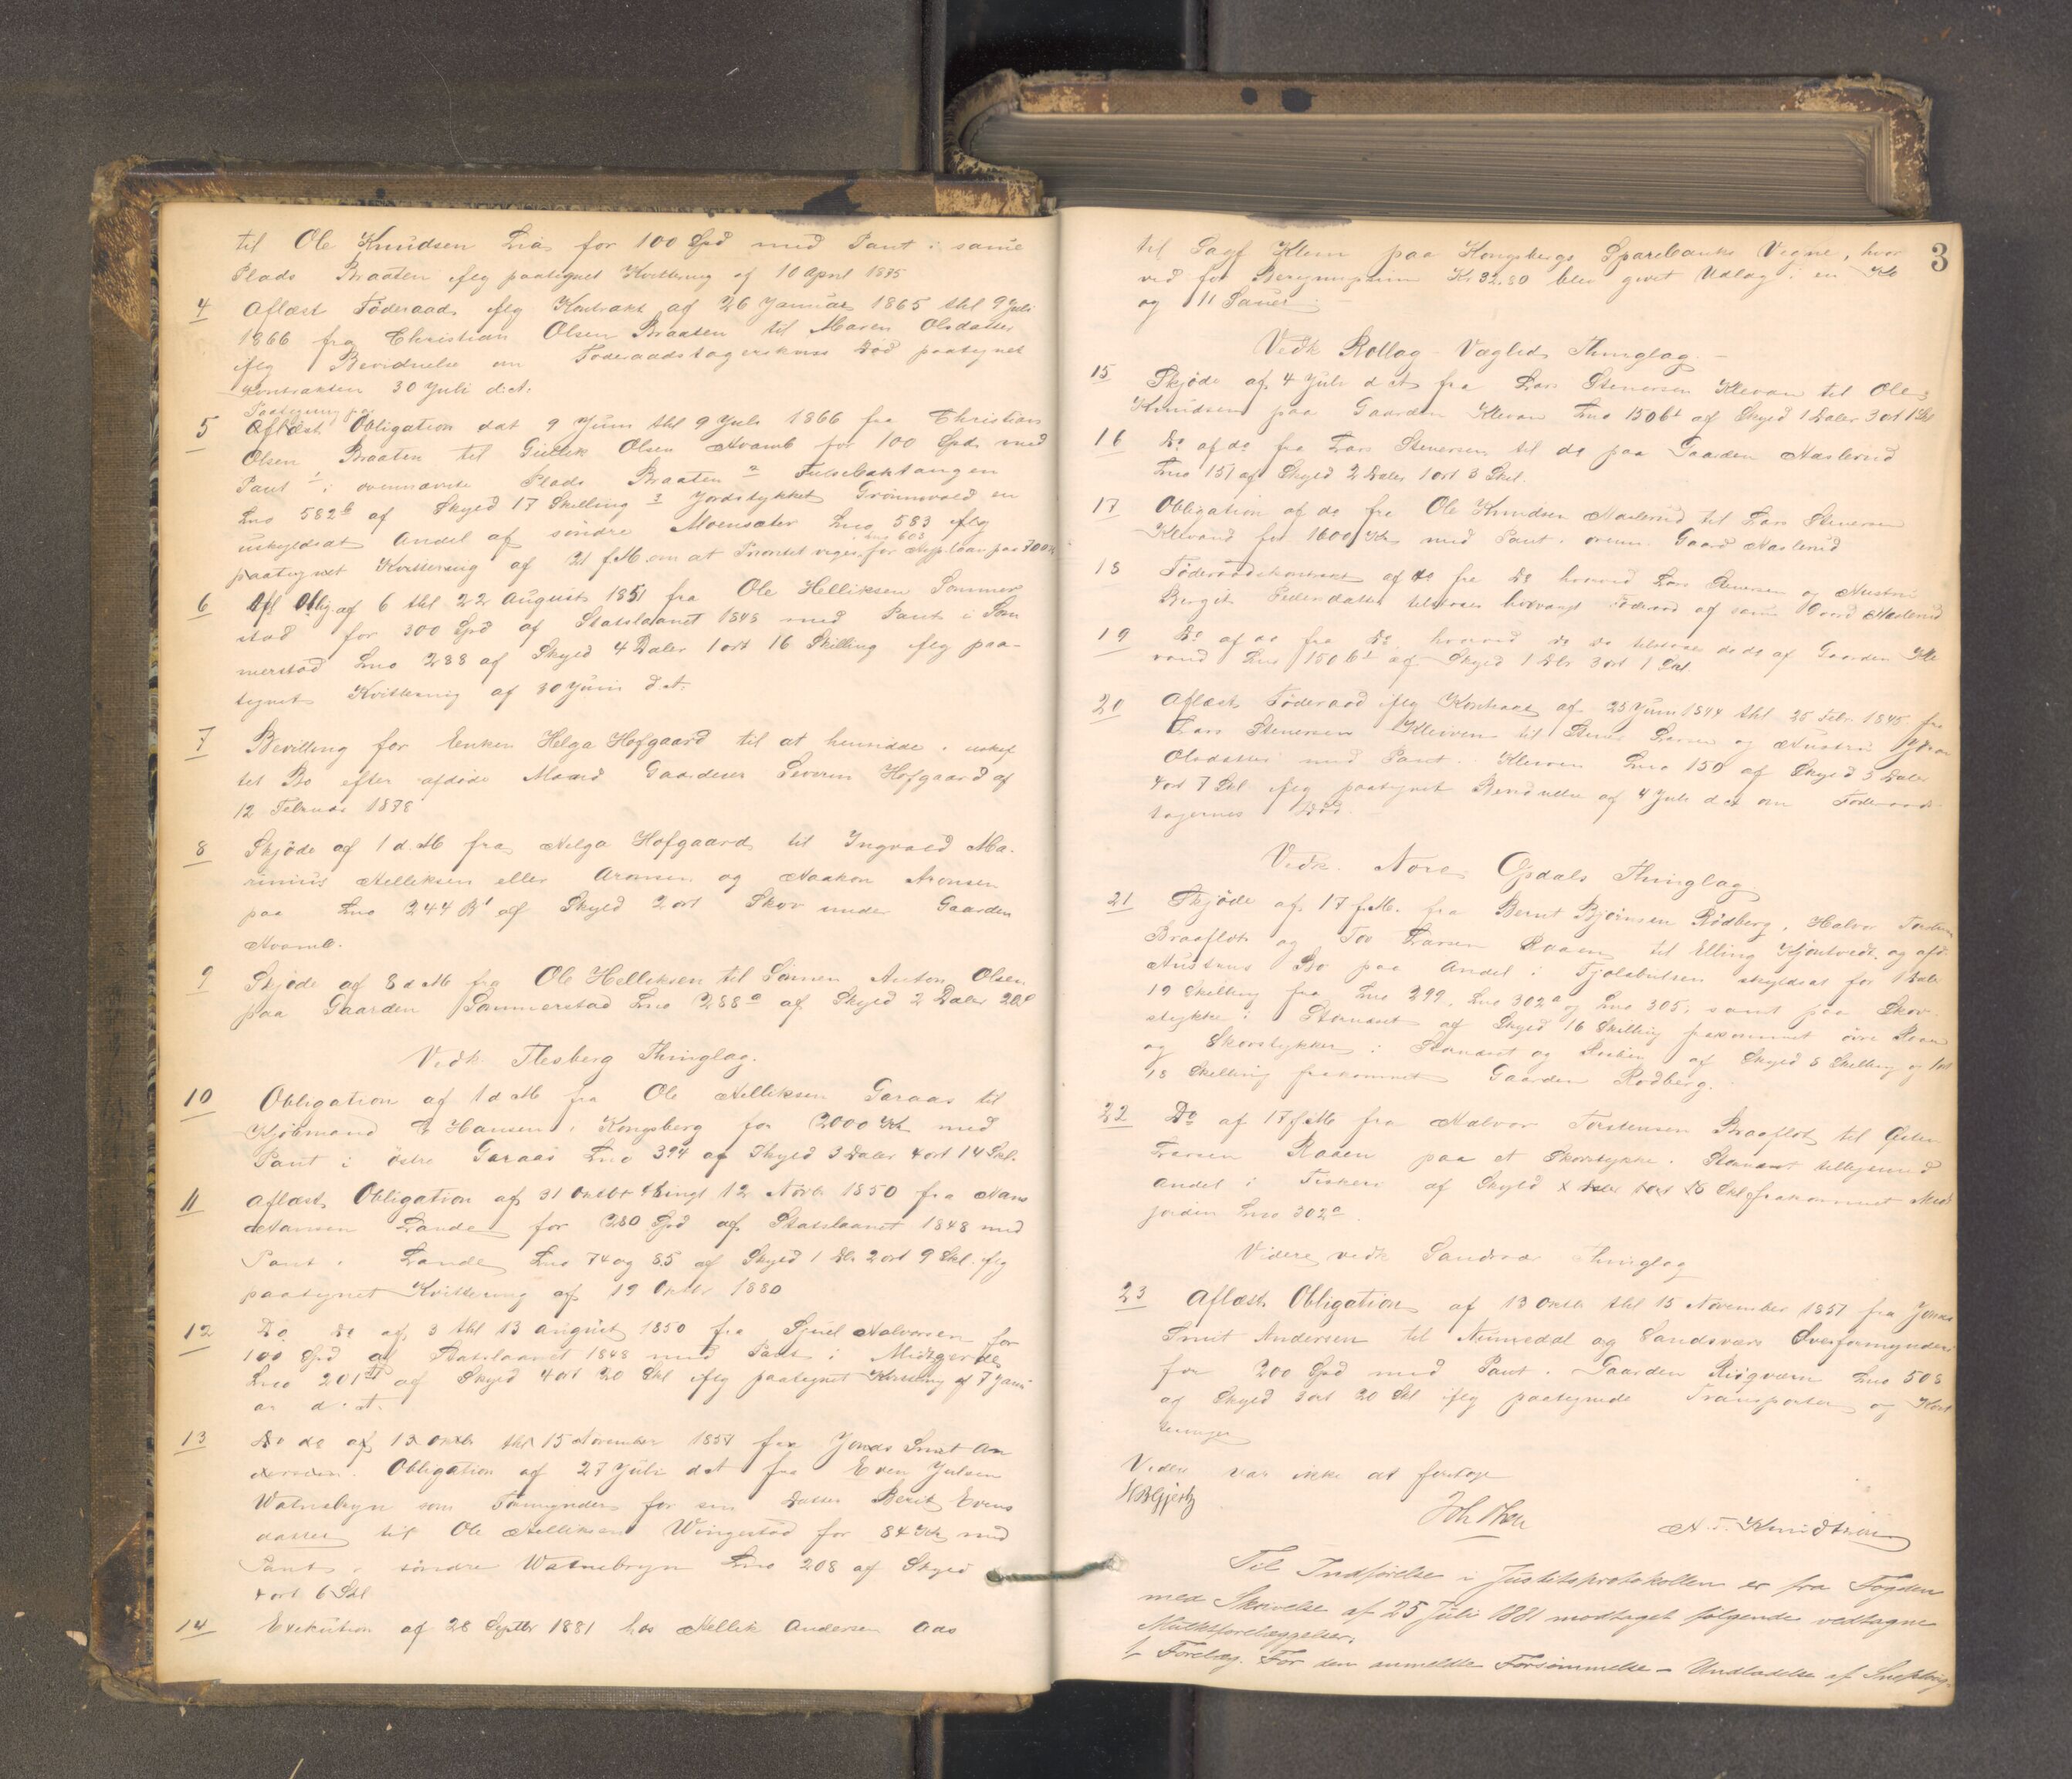 til Ole Knudsen Lia for 100 Spd med Pant i samme
Plads Braaten iflg paategnet Kvittering af 10 April 1875
4 Aflæst Föderaad iflg Kontrakt af 26 Januar 1865 thl 9 Juli
1866 fra Christian Olsen Braaten til Maren Olsdatter
iflg Bevidnelse om Föderaadstagerskens Död paategnet
Kontrakten 30 Juli d.A.
Paategning paa
5 Aflæst Obligation dat 9 Juni thl 9 Juli 1866 fra Christian
Olsen Braaten til Gullik Olsen Hvamb for 100 Spd. med
Pant i ovennævnte Plads Braaten 2 Fulsebaktangen
Lno 582b af Skyld 17 Skilling 3 Jordstykket Grönnvold en
uskyldsat Andel af söndre Moensæter Lno 583 iflg
Lno 603
paategnet Kvittering af 21 f.M. om at Prioritet viges for Hyp.laan paa 700 Kr
6 Afl Oblig af 6 thl 22 August 1851 fra Ole Helliksen Sommer
stad for 300 Spd af Statslaanet 1848 med Pant i Som
merstad Lno 288 af Skyld 4 Daler 1 ort 16 Skilling iflg paa-
tegnet Kvittering af 30 Juni d.A.
7 Bevilling for Enken Helga Hofgaard til at hensidde i uskif
tet Bo efter afdöde Mand Gaardeier Severin Hofgaard af
12 Februar 1878
8 Skjöde af 1 d.M fra Helga Hofgaard til Ingvald Ma-
rinius Helliksen eller Aronsen og Haakon Aronsen
paa Lno 244 B1 af Skyld 2 ort Skov under Gaarden
Hvamb.
9 Skjöde af 8 d.M fra Ole Helliksen til Simen Anton Olsen
paa Gaarden Sommerstad Lno 288a af Skyld 2 Daler 20
Vedk Flesberg Thinglag.
10 Obligation af 1 d M fra Ole Helliksen Garaas til
Kjöbmand T Hansen i Kongsberg for 2000 Kr med
Pant i östre Garaas Lno 394 af Skyld 3 Daler 4 ort 14 Skl.
11 Aflæst Obligation af 31 Oktbr thingl 12 Novb 1850 fra Hans
Hansen Lande for 280 Spd af Statslaanet 1848 med
Pant i Lande Lno 74 og 85 af Skyld 1 Dlr 2 ort 9 Skl iflg
paategnet Kvittering af 19 Oktbr 1880
12 Do do af 3 thl 13 August 1850 fra Sjul Halvorsen for
100 Spd af Statslaanet 1848 med Pant i Midtgarde
Lno 201 af Skyld 4 ort 20 Skl iflg paategnet Kvittering af 7 Janu
ar d.A.
13 Do do af 13 Oktb thl 15 November 1857 fra Jonas Smit An
dersen. Obligation af 27 Juli d A fra Even Julsen
Watnebryn som Formynder for sin Datter Berit Evens
datter til Ole Helliksen Wingestad for 84 Kr med
Pant i söndre Watnebryn Lno 208 af Skyld
4 ort 6 Skl
14 Exekution af 28 Septbr 1881 hos Hellik Andersen Aas
3
til Sagf Klem paa Kongsbergs Sparebanks Vegne, hvor
ved for Beregningssum Kr 32.80 blev givet Udlæg i en Ko
og 11 Sauer. —
Vedk Rollag - Væglids Thinglag. —
15 Skjöde af 4 Juli d A fra Lars Stenersen Klevan til Ole
Knudsen paa Gaarden Klevan Lno 150 b1 af Skyld 1 Daler 3 ort 1 Skl
16 Do af do fra Lars Stenersen til do paa Gaarden Haslerud
Lno 151 af Skyld 2 Daler 1 ort 3 Skl.
17 Obligation af do fra Ole Knudsen Haslerud til Lars Stenersen
Klevand for 1600 Kr med Pant i ovenn. Gaard Haslerud
18 Föderaadskontrakt af do fra do hvorved Lars Stenersen og Hustru
Bergit Pedersdatter tilstaaes livsvarigt Föderaad af samme Gaard Haslerud
19 Do af do fra do, hvorved do do tilstaaes do do af Gaarden Kle
vand Lno 150 b1 af Skyld 1 Dlr 3 ort 1 Skl
20 Aflæst Föderaad iflg Kontrakt af 25 Juni 1844 thl 25 Febr 1845 fra
Lars Stenersen Kleiven til Stener Larsen og Hustru Göro
Olsdatter med Pant i Kleiven Lno 150 af Skyld 5 Daler
4 ort 7 Skl iflg paategnet Bevidnelse af 4 Juli d A om Föderaads
tagernes Död.
Vedk. Nore Opdals Thinglag
21 Skjöde af 17 f.M. fra Bernt Björnsen Rödberg, Halvor Torstens
Braaflöt og Tov Larsen Raaen til Elling Kjöntvedt og afd
Hustrus Bo paa Andel i Fjölebulsen skyldsat for 1 Dale
19 Skilling fra Lno 299, Lno 302a og Lno 305, samt paa Skov
stykke i Stanaset af Skyld 16 Skilling frakommet övre Raaen
og Skovstykker i Stanaset og Fiskeri af Skyld 8 Skilling og 1 ort
18 Skilling frakommet Gaarden Rødberg.
22 Do af 17 f.M fra Halvor Torstensen Braaflöt til Östen
Larsen Raaen paa et Skovstykke i Stanaset tilligemed
Andel i Fiskeri af Skyld 16 Skl frakommet Med
jorden Lno 302a
Videre vedk Sandsvær Thinglag
23 Aflæst Obligation af 13 Oktb thl 15 November 1857 fra Jonas
Smit Andersen til Numedal og Sandsværs Overformynderi
for 200 Spd med Pant i Gaarden Ringværn Lno 503
af Skyld 3 ort 20 Skl iflg paategnede Transporter og Kvit
teringer
Videre var ikke at foretage
HBGjertz
Joh Thor
H. T. Knudtsen
Til Indförelse i Justitsprotokollen er fra Fogden
med Skrivelse af 25 Juli 1881 modtaget fölgende vedtagne
Mulktforelæggelser.
1/ Forelæg. For den anmeldte Forsömmelse — Undladelse af Sneplöig-